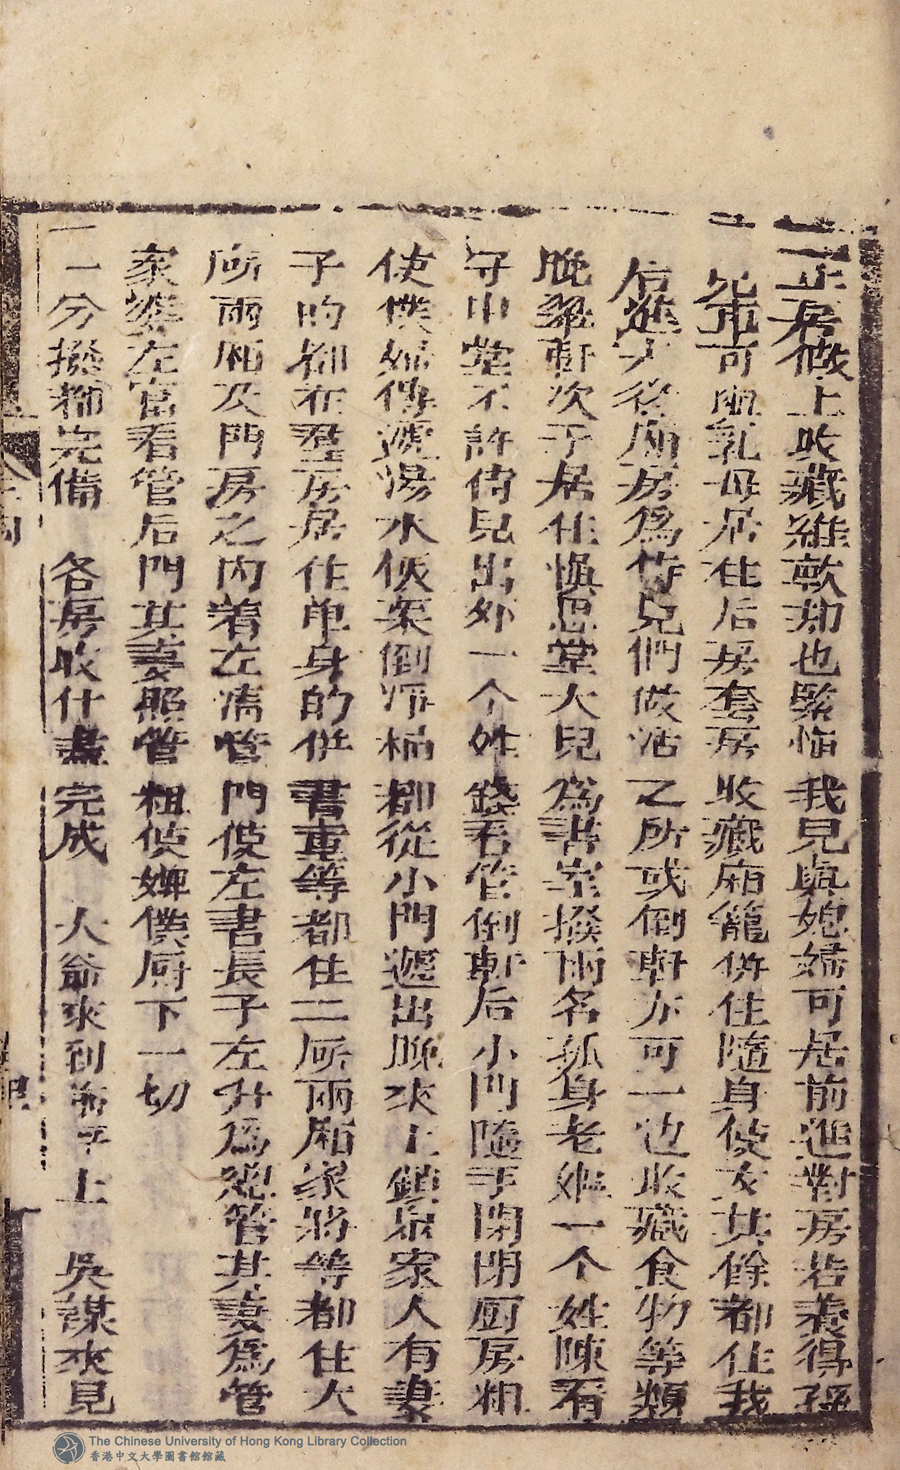 正房做上收藏維軟却也緊恼我兒與媳婦可居前進對房若養得孫
兒亦可 乳母居住后房套房收藏廂籠併住隨身使女其餘都住我
后進 后房爲侍兒們做活之所或倒軒亦可一边收藏食物等類
晚翠軒次子居住愼思堂大兒爲書室撥兩名孤身老嫗一个姓陳看
守中堂不許侍兒出外一个姓錢看管倒軒后小門隨手閉閉厨房粗
使僕婦傳遞湯水伙菜倒淨桶都從小門遞出晚來上鎖衆家人有妻
子的都在羣房居住单身的併書童等都住二所兩廂家將等都住大
所兩廂及門房之内着左清管門使左書長子左升爲総管其妻爲管
家婆左富看管后門其妻照管粗使婢僕厨下一切
一分撥都完備 各房收什盡完成 人爺來到 上 吳謀來見
The Chinese University of Hong Kong Library Collection
香港中文大學圖書館館藏